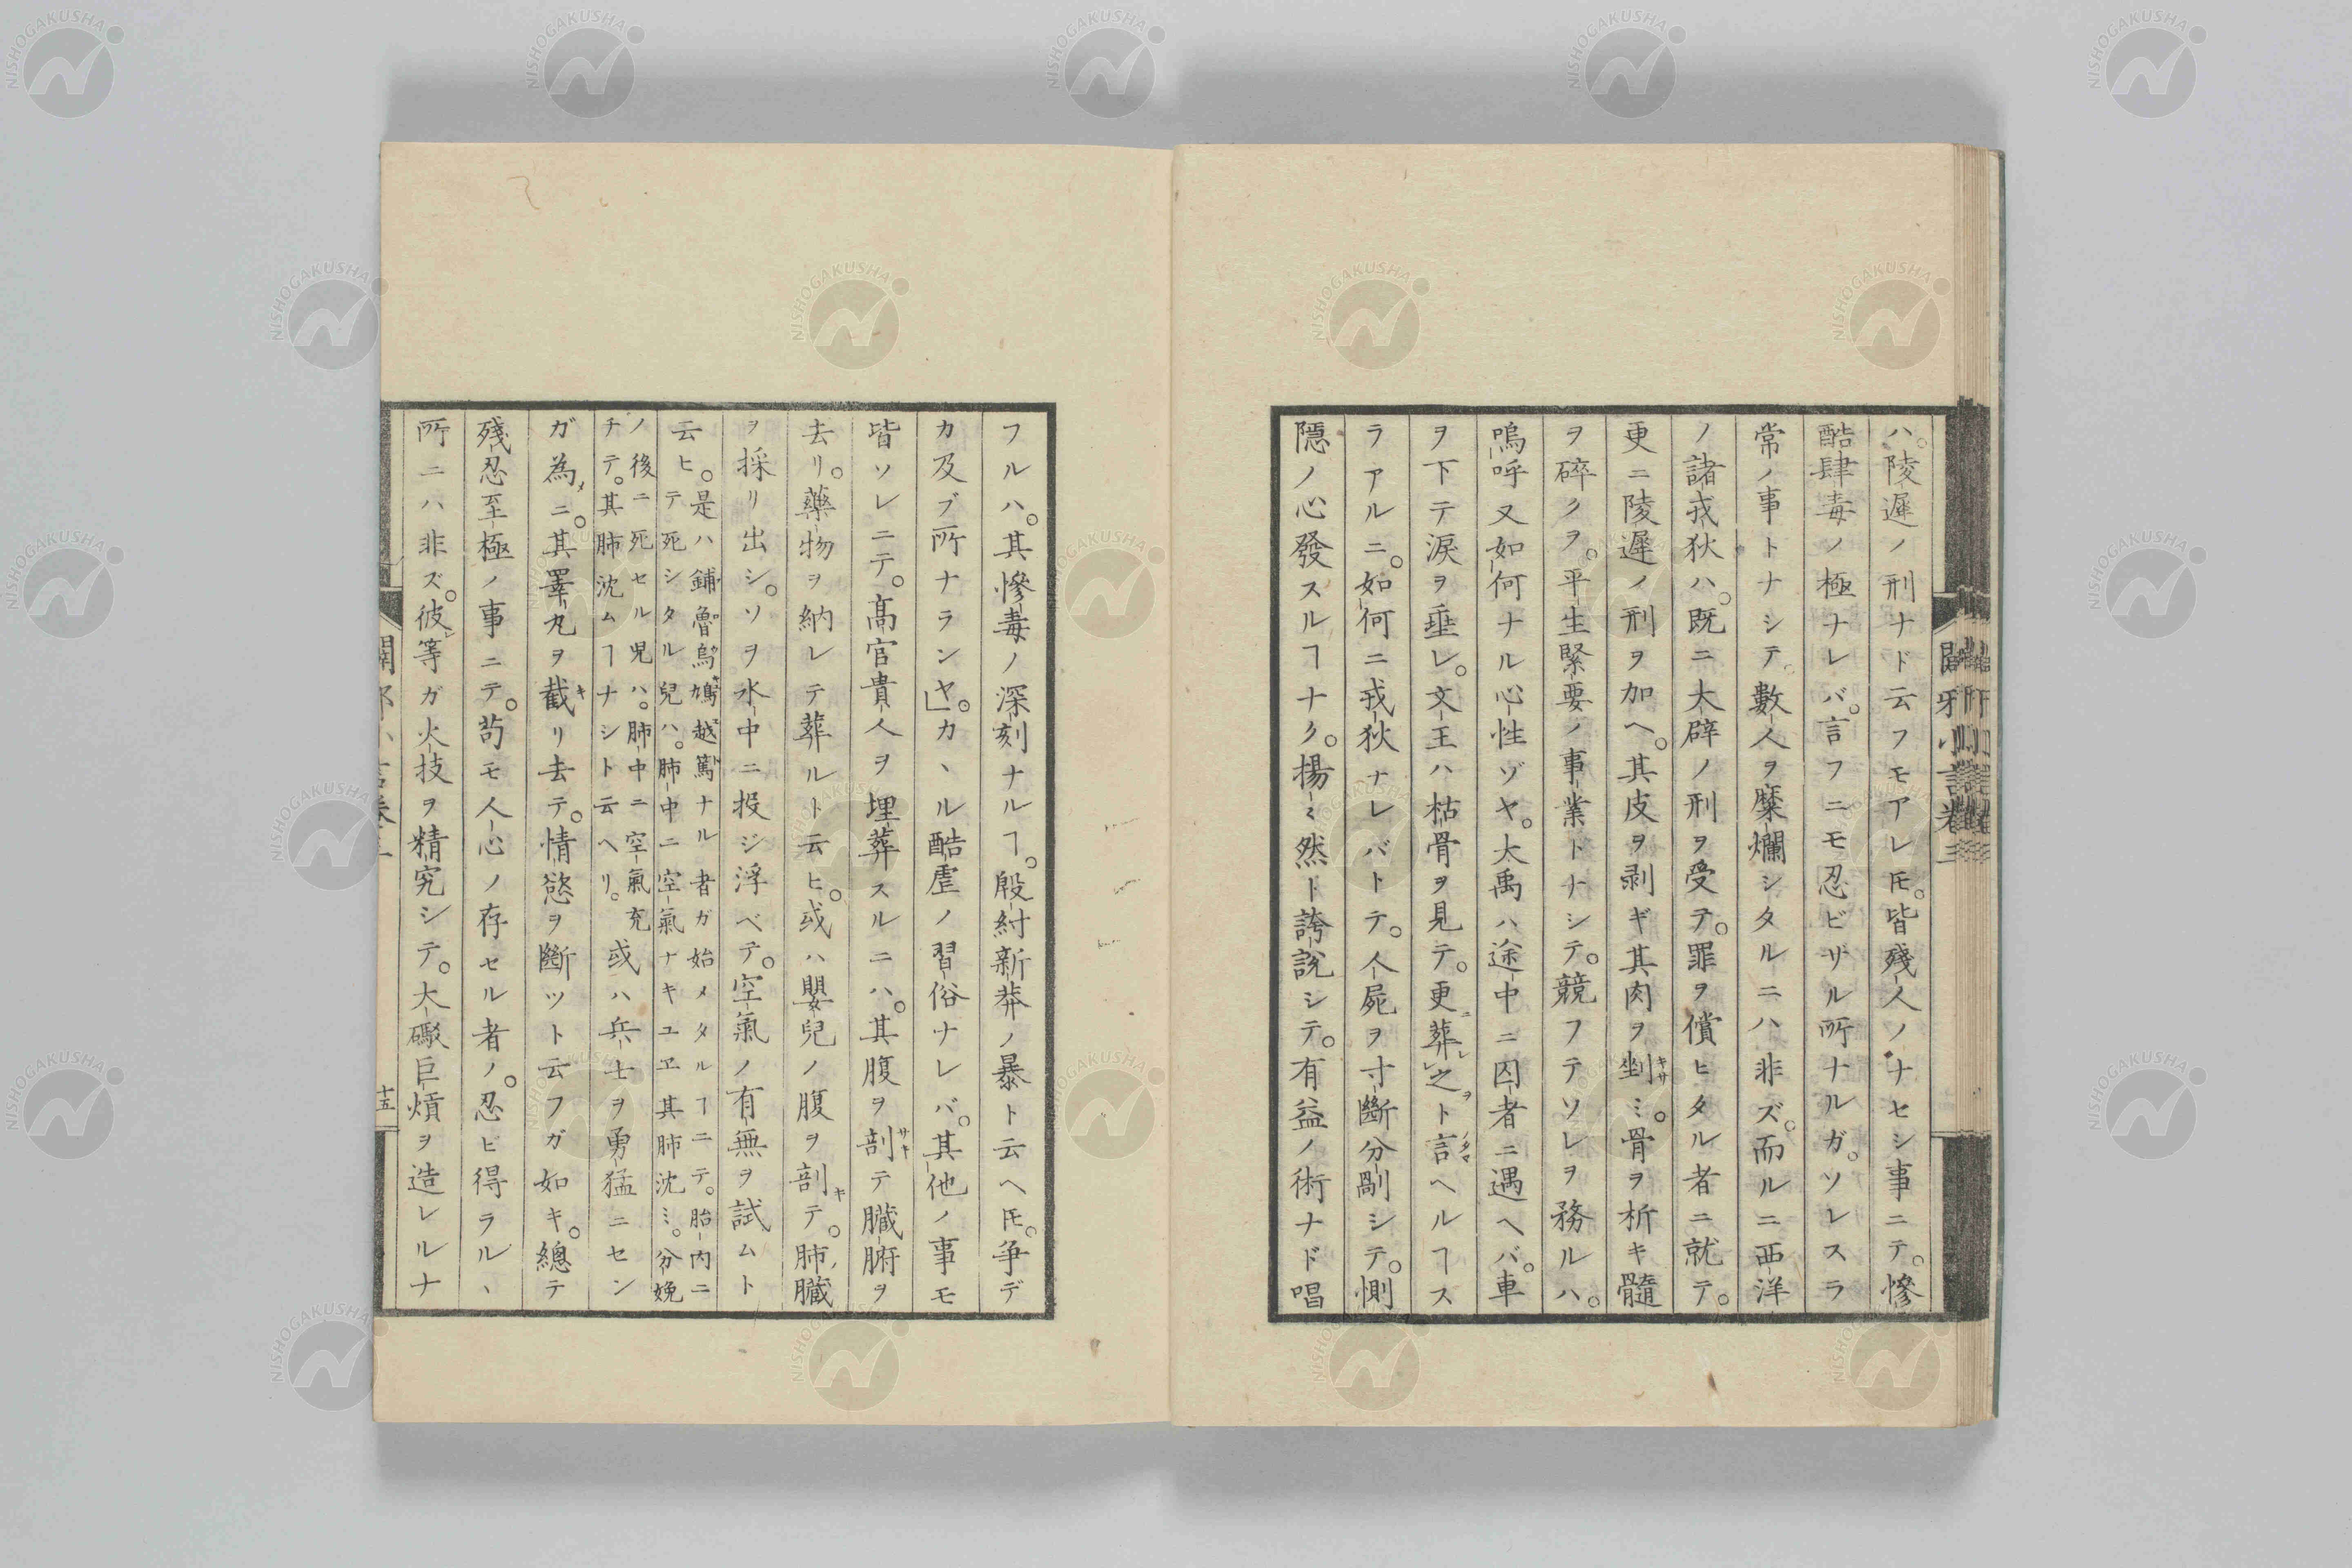 ハ。陵遲ノ刑ナド云フモアレ𪜈。皆殘人ノナセシ事ニテ。慘
酷肆毒ノ極ナレバ。言フニモ忍ビザル所ナルガ。ソレスラ
常ノ事トナシテ數人ヲ糜爛シタルニハ非ズ。而ルニ西洋
ノ諸戎狄ハ。既ニ大辟ノ刑ヲ受テ。罪ヲ償ヒタル者ニ就テ。
更ニ陵遲ノ刑ヲ加ヘ。其皮ヲ剥ギ其肉ヲ剉ミ。骨ヲ析キ髓
ヲ碎クヲ。平生緊要ノ事業トナシテ。競フテソレヲ務ルハ。
嗚呼又如何ナル心性ゾヤ。大禹ハ途中ニ囚者ニ遇ヘバ。車
ヲ下テ涙ヲ垂レ。文王ハ枯骨ヲ見テ。更葬之ト言ヘルヿス
ラアルニ。如何ニ戎狄ナレバトテ。人屍ヲ寸斷分剮シテ。惻
隱ノ心發スルヿナク。揚ミ然ト誇說シテ。有益ノ術ナド唱
闢邪小言卷三
フルハ。其慘毒ノ深刻ナルヿ。殷紂新莽ノ暴ト云ヘ𪜈。爭デ
カ及ブ所ナランヤ」。カヽル酷虐ノ習俗ナレバ。其他ノ事モ
皆ソレニテ。高官貴人ヲ埋葬スルニハ。其腹ヲ剖テ臟腑ヲ
去リ。藥物ヲ納レテ葬ルト云ヒ。或ハ嬰兒ノ腹ヲ剖テ。肺臟
ヲ採リ出シ。ソヲ水中ニ投ジ浮ベテ。空氣ノ有無ヲ試ムト
云ヒ。是ハ鋪魯烏鳩越篤ナル者ガ始メタルヿニテ。胎内ニ
テ死シタル兒ハ。肺中ニ空氣ナキユヱ其肺沈ミ。分娩
ノ後ニ死セル児ハ。肺中ニ空氣充
チテ。其肺沈ムヿナシト云ヘリ。或ハ兵士ヲ勇猛ニセン
ガ為ニ。其睪丸ヲ截リ去テ。情慾ヲ斷ツト云フガ如キ。總テ
殘忍至極ノ事ニテ。苟モ人心ノ存セル者ノ。忍ビ得ラルヽ
所ニハ非ズ。彼等ガ火技ヲ精究シテ。大礟巨熕ヲ造レルナ
十五